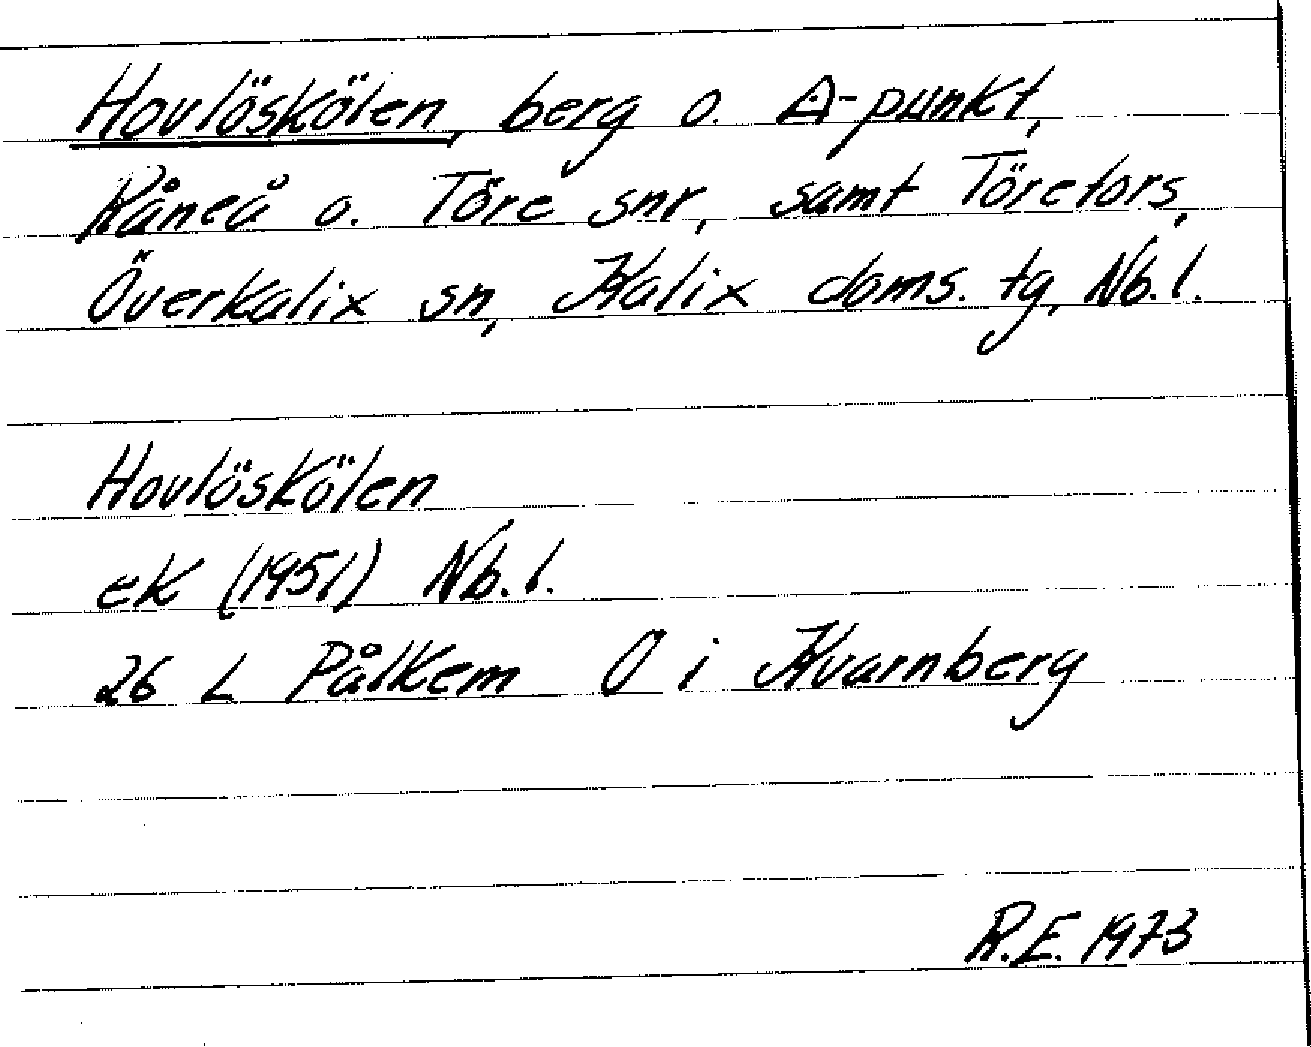 Hovlöskölen, berg o. △-punkt,
Råneå o. Töre snr, samt Törefors,
Överkalix sn, Kalix doms. tg, Nb. l.
Hovlöskölen
ek (1951) Nb. l.
26 L Pålkem Ö i Kvarnberg
R.E. 1973